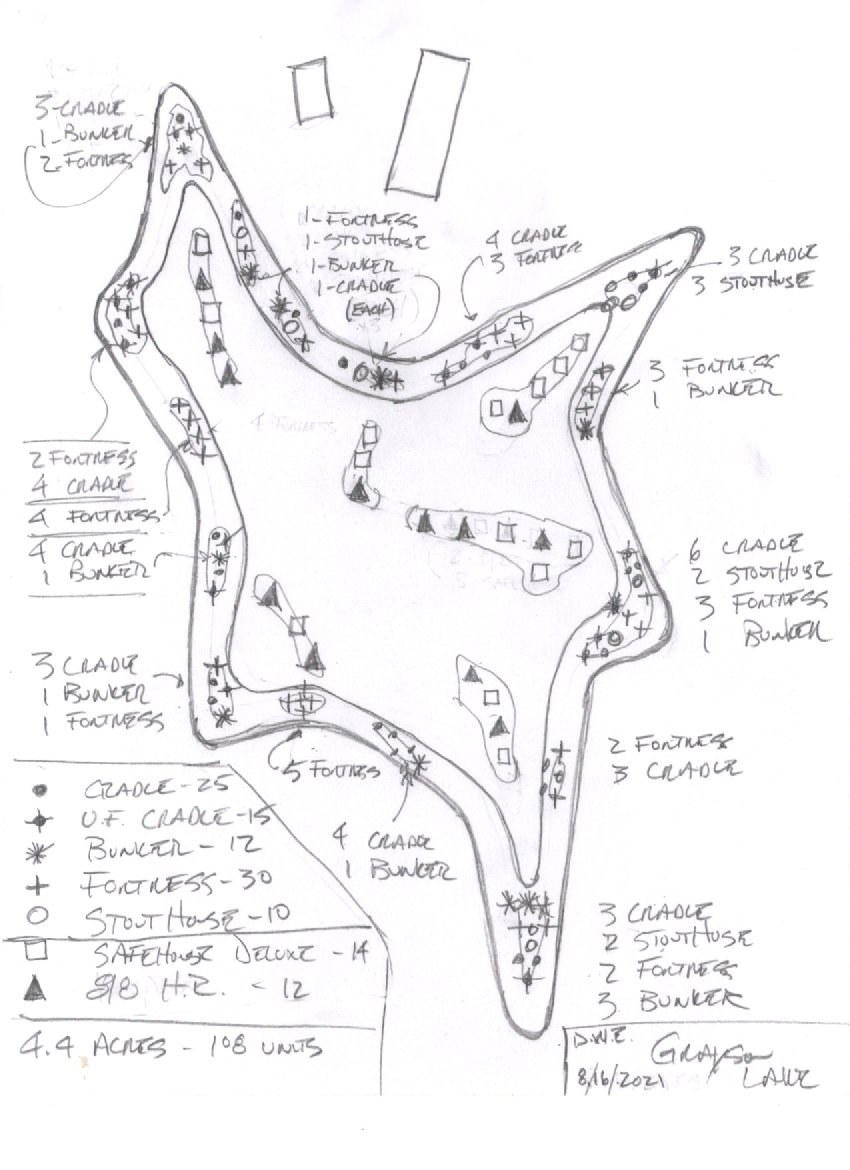 3-CRADLE
1-BUNKER
2-FORTRESS
1-FORTRESS
1-STOUTHOSE
1-BUNKER
1-CRADLE
(EACH)
4 CRADLE
3 FORTRESS
3 CRADLE
3 STOUTHUSE
3 FORTRESS
1 BUNKER
2 FORTRESS
4 CRADLE
4 FORTRESS
4 CRADLE
1 BUNKER
6 CRADLE
2 STOUTHUSE
3 FORTRESS
1 BUNKER
3 CRADLE
1 BUNKER
1 FORTRESS
5 FORTRESS
2 FORTRESS
3 CRADLE
4 CRADLE
1 BUNKER
CRADLE-25
U.F. CRADLE-15
BUNKER-12
FORTRESS-30
STOUTHOUSE-10
SAFEHOUSE DELUXE -14
H.R. - 12
4.4 ACRES - 108 UNITS
3 CRADLE
2 STOUTHUSE
2 FORTRESS
3 BUNKER
D.W.E.
GRAYSON
8/16/2021
LAKE